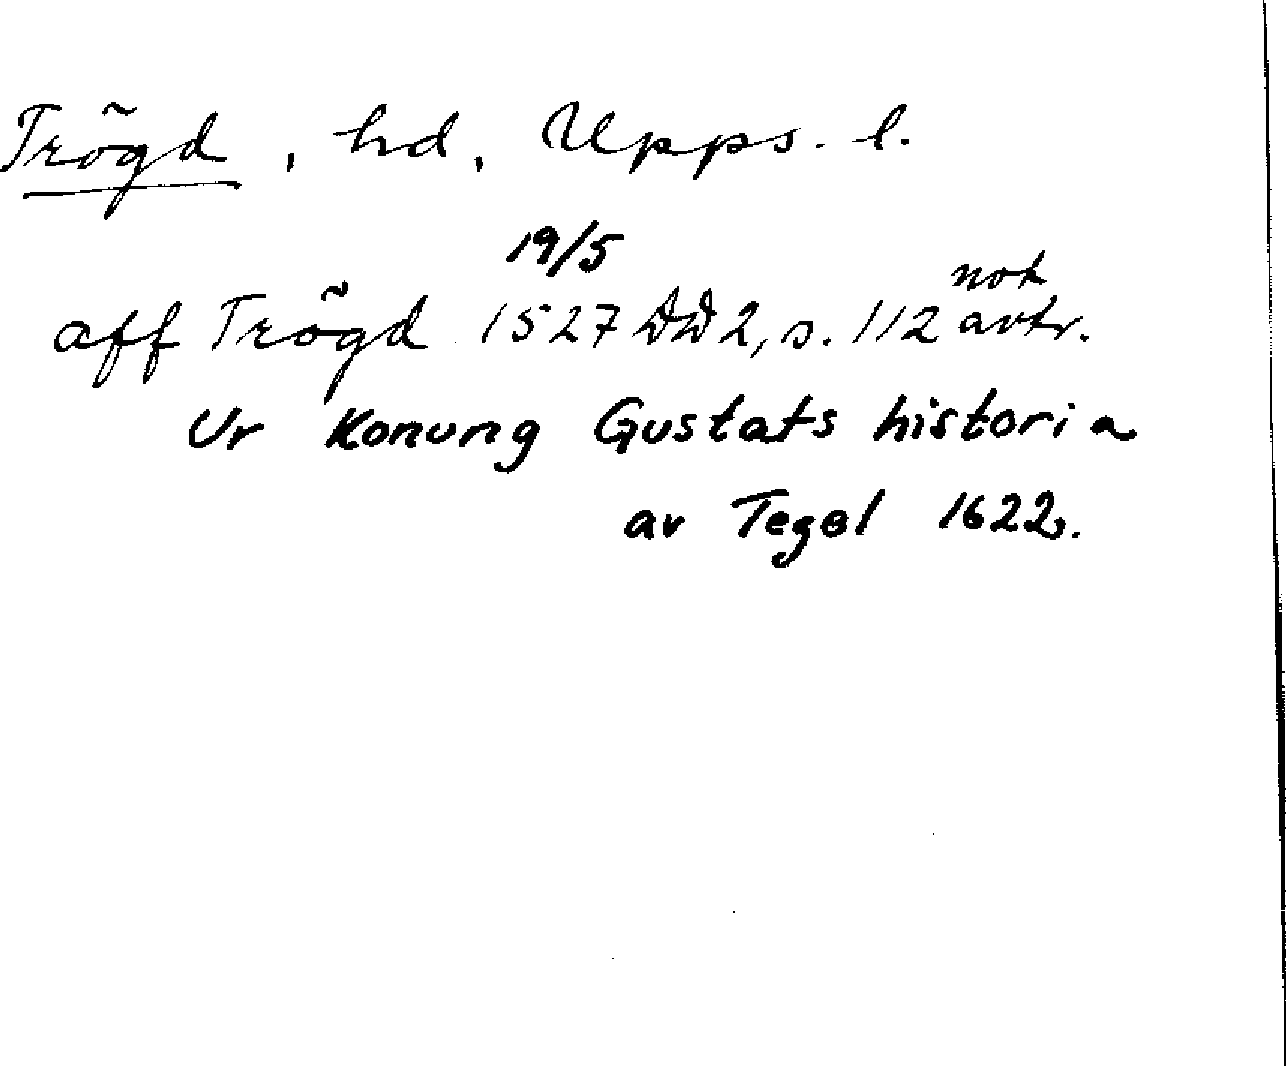 Trögd, hd, Upps. l.
19/5
not
aff Trögd 1527 DD 2, s. 112 avtr.
Ur Konung Gustafs historia
av Tegel 1622.